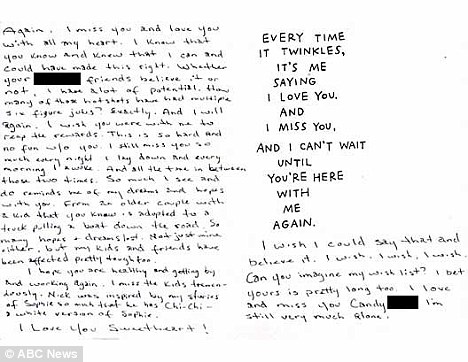 Again. I miss you and love you
with all my heart. I know that
you know and knew that I can and
could have made this right. Whether
your friends believe it or
not, I have a lot of potential. How
many of those hotshots have had multiple
six figure jobs? Exactly. And I will
again. I wish you were with me to
reap the rewards. This is so hard and
no fun w/o you. I still miss you so
much every night I lay down and every
morning I awake. And all the time in between
those two times. So much I see and
do reminds me of my dreams and hopes
with you. From an older couple with
a kid that you know is adopted to a
truck pulling a boat down the road. So
many hopes + dreams lost. Not just mine
either, but my kids and friends have
been affected pretty tough too.
I hope you are healthy and getting by
and working again. I miss the kids tremen-
dously. Nick was inspired by my stories
of Sophie so much that he has Chi-Chi-
a white version of Sophie.
I Love You Sweetheart!
EVERY TIME
IT TWINKLES,
IT'S ME
SAYING
I LOVE YOU.
AND
I MISS YOU,
AND I CAN'T WAIT
UNTIL
YOU'RE HERE
WITH
ME
AGAIN.
I wish I could say that and
believe it. I wish. I wish, I wish.
Can you imagine my wish list? I bet
yours is pretty long too. I love
and miss you Candy I'm
still very much alone.
© ABC News